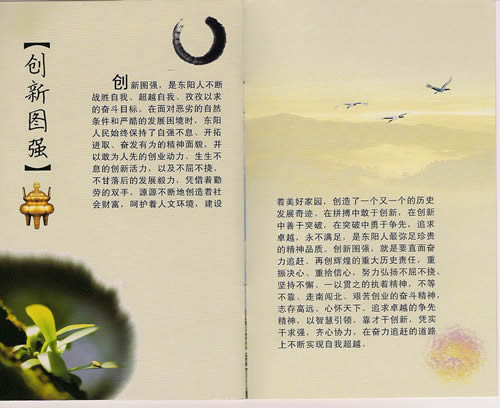 【创新图强】
创新图强，是东阳人不断
战胜自我、超越自我、孜孜以求
的奋斗目标。在面对恶劣的自然
条件和严酷的发展困境时，东阳
人民始终保持了自强不息、开拓
进取、奋发有为的精神面貌，并
以敢为人先的创业动力、生生不
息的创新活力，以及不屈不挠、
不甘落后的发展毅力，凭借着勤
劳的双手，源源不断地创造着社
会财富，呵护着人文环境，建设
着美好家园，创造了一个又一个的历史
发展奇迹。在拼搏中敢于创新，在创新
中善于突破，在突破中勇于争先，追求
卓越，永不满足，是东阳人最弥足珍贵
的精神品质。创新图强，就是要直面奋
力追赶、再创辉煌的重大历史责任，重
振决心、重拾信心，努力弘扬不屈不挠、
坚持不懈、一以贯之的执着精神，不等
不靠、走南闯北、艰苦创业的奋斗精神，
志存高远、心怀天下、追求卓越的争先
精神，以智慧引领，靠才干创新，凭实
干求强，齐心协力，在奋力追赶的道路
上不断实现自我超越。